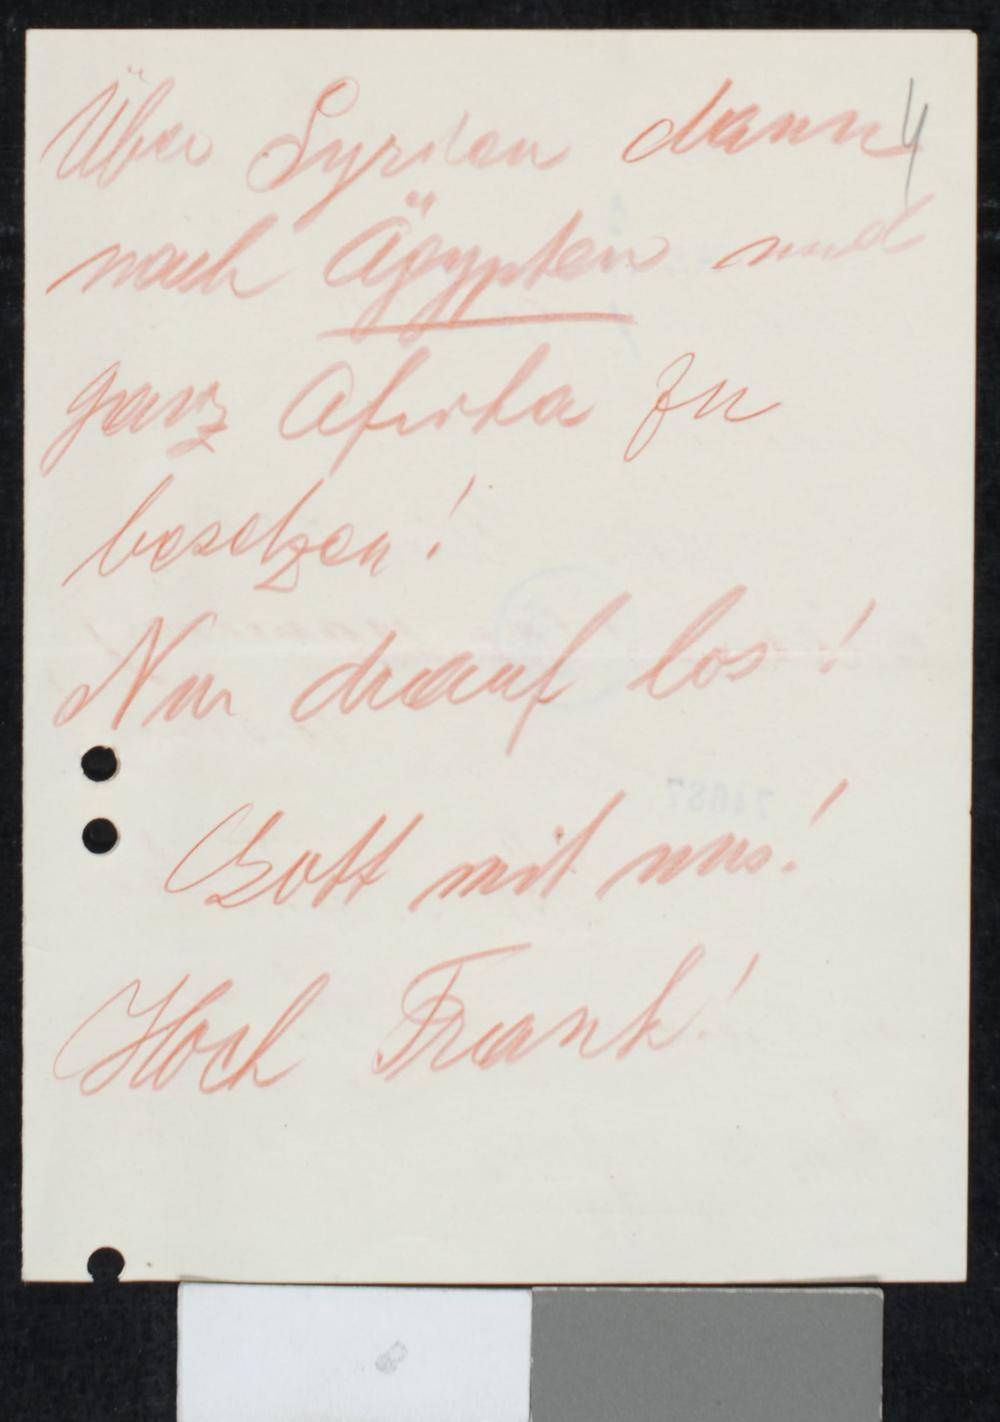 Über Syrien dann 4
nach Ägypten und
ganz Afrika zu
besetzen!
Nur drauf los!
74687
Gott mit uns!
Hoch Frank!